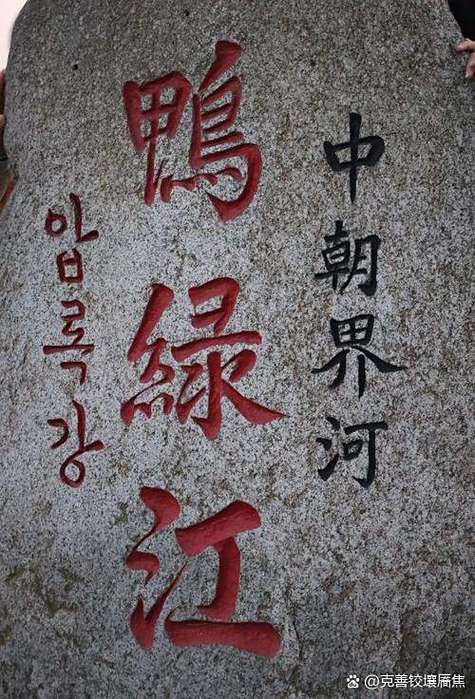 中朝界河
鴨緑江
압록강
@克善铰壤厮焦